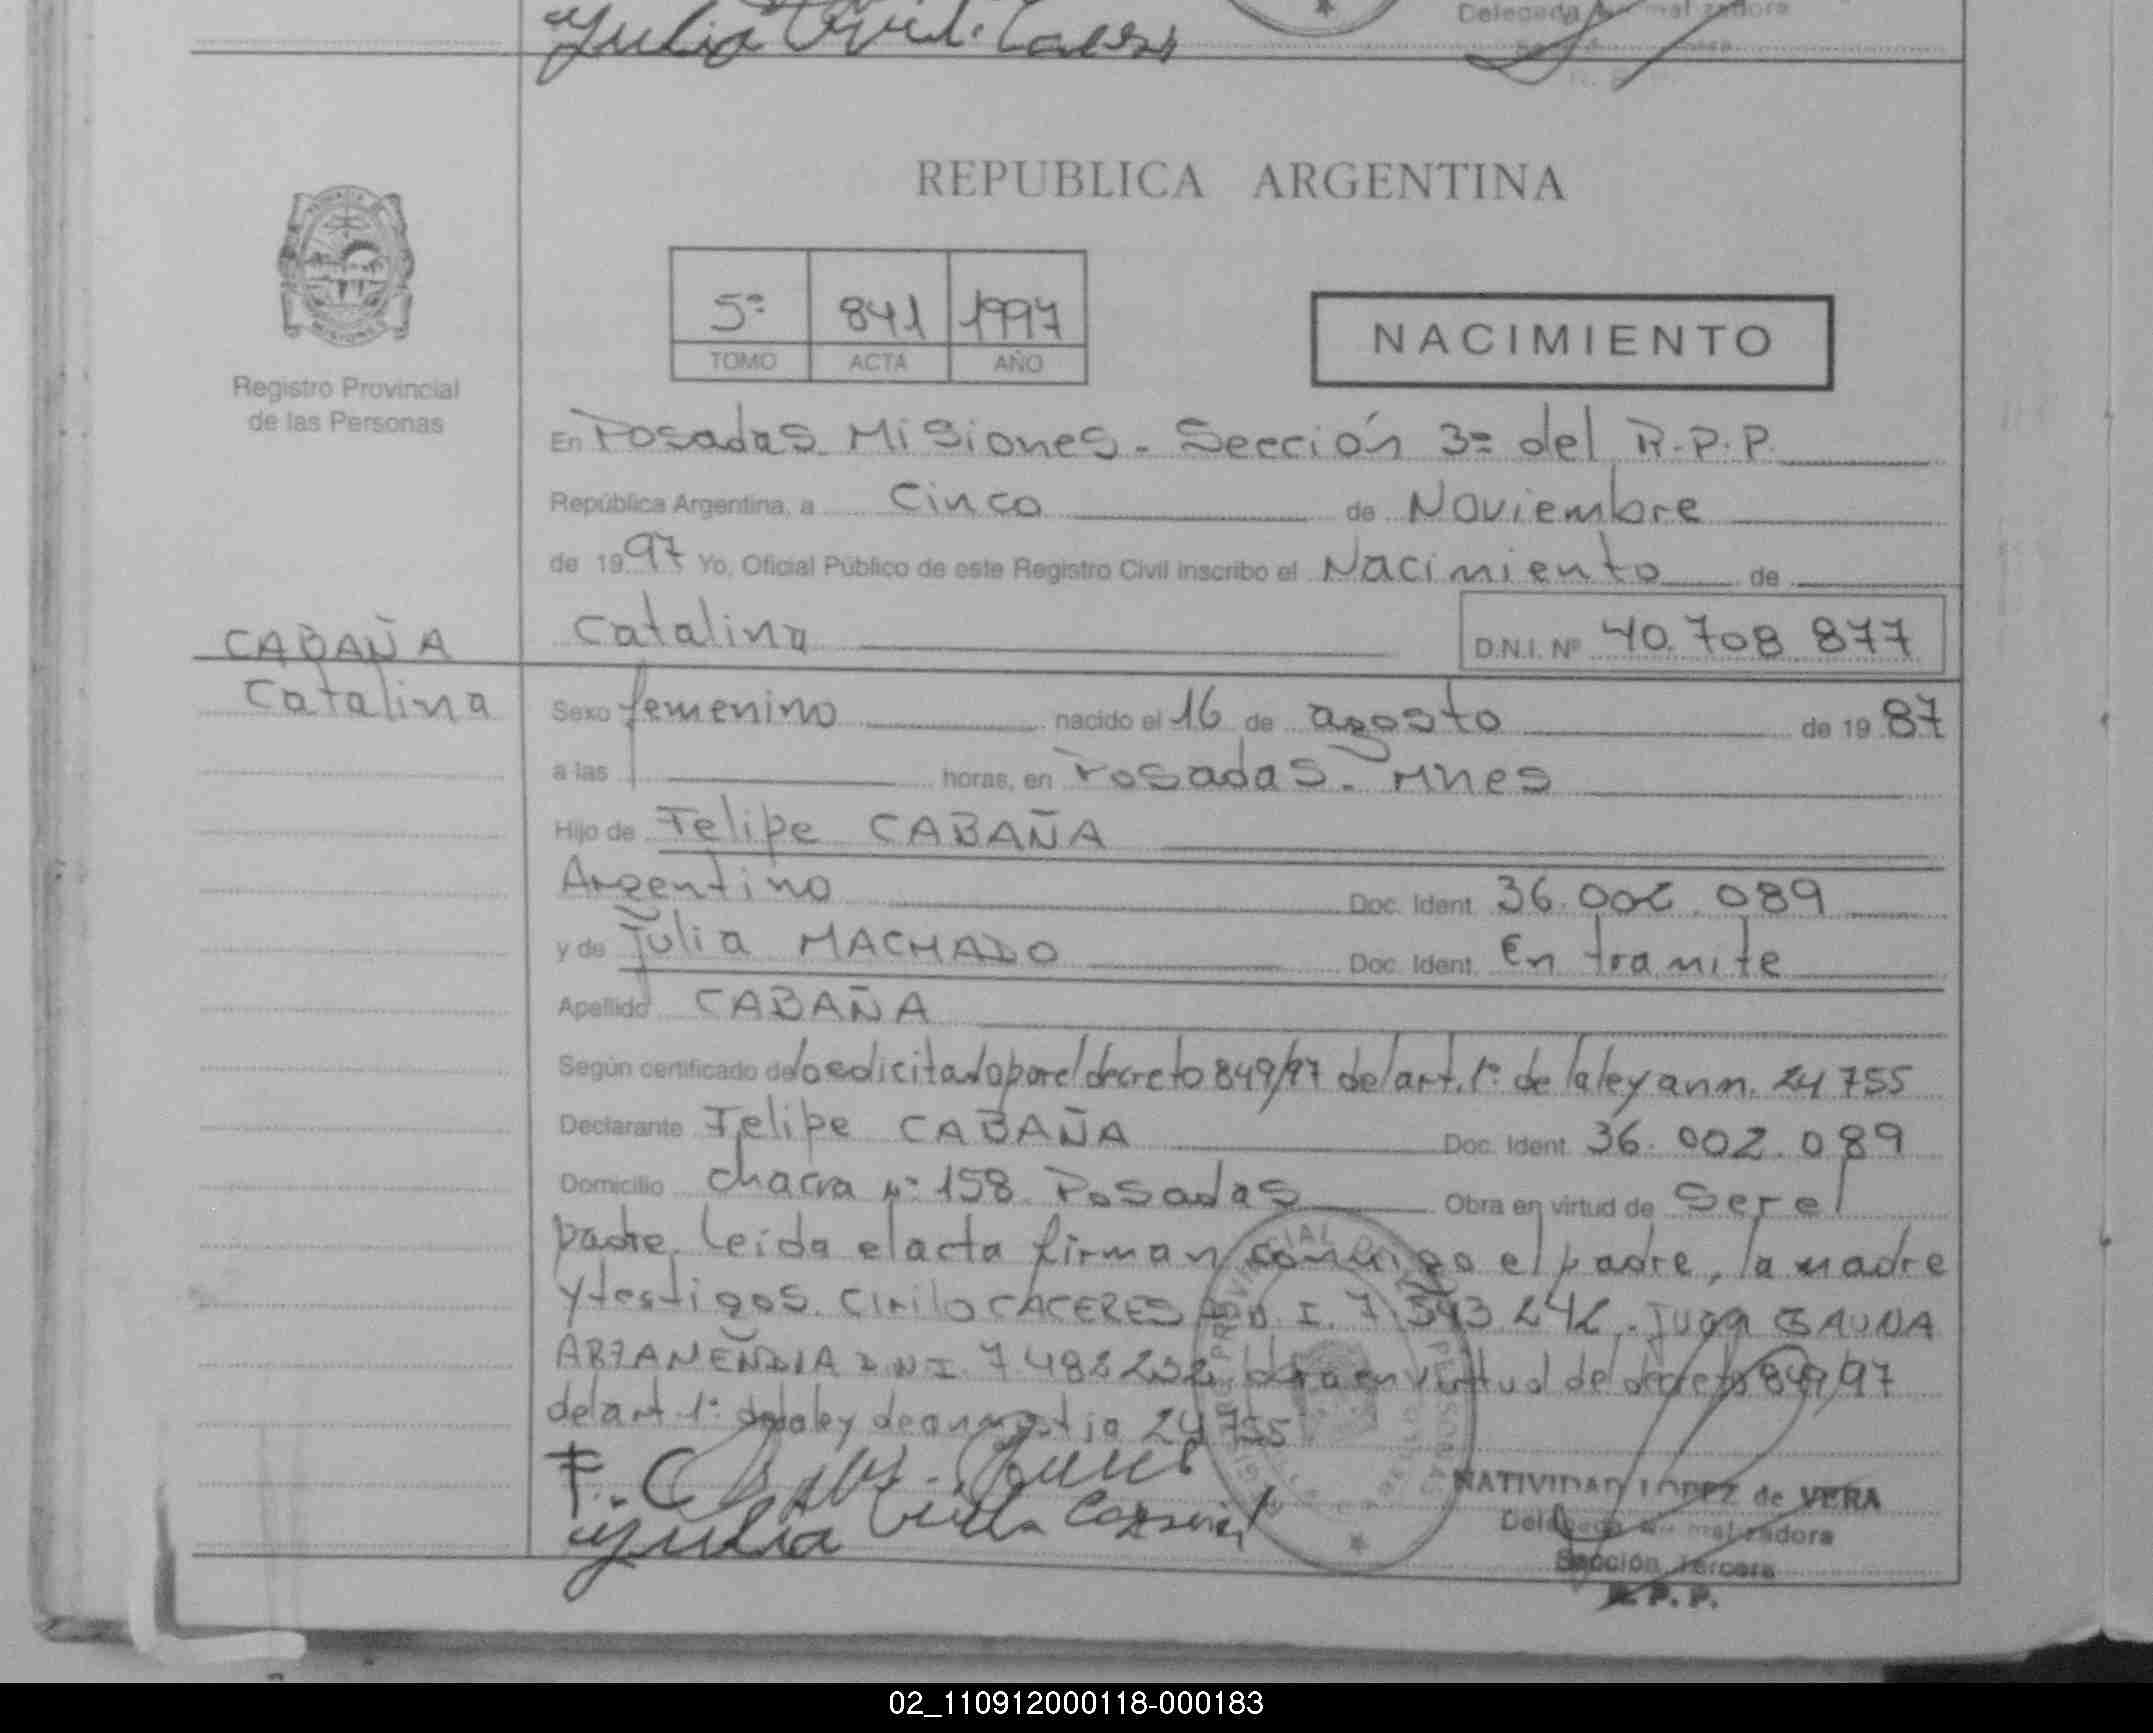 Julia
Delegada
REPUBLICA ARGENTINA
5º 841 1997
TOMO ACTA AÑO
NACIMIENTO
Registro Provincial
de las Personas
En Posadas Misiones - Sección 3ª del R.P.P.
República Argentina, a Cinco de Noviembre
de 1997 Yo, Oficial Público de este Registro Civil inscribo el Nacimiento de
CABAÑA
Catalina
Catalina D.N.I. Nº 40.708.877
Sexo femenino nacido el 16 de agosto de 1987
a las horas, en Posadas - Mnes
Hijo de Felipe CABAÑA
Argentino Doc. Ident. 36.002.089
y de Julia MACHADO Doc. Ident. En tramite
Apellido CABAÑA
Según certificado de lo edicitado por el decreto 849/97 del art. 1º de la ley amn. 24755
Declarante Felipe CABAÑA Doc. Ident. 36.002.089
Domicilio chacra nº 158 Posadas Obra en virtud de Ser el
padre, leida el acta firman conmigo el padre, la madre
y testigos. Cirilo CACERES D.N.I. 7.543.242. Juan GAUNA
D.N.I. 7.482.232 obra en virtud del decreto 849/97
del art. 1º de la ley de amnistia 24755
F. C
Julia
NATIVIDAD LOPEZ de VERA
Delegada Normalizadora
Sección Tercera
R.P.P.
02_110912000118-000183